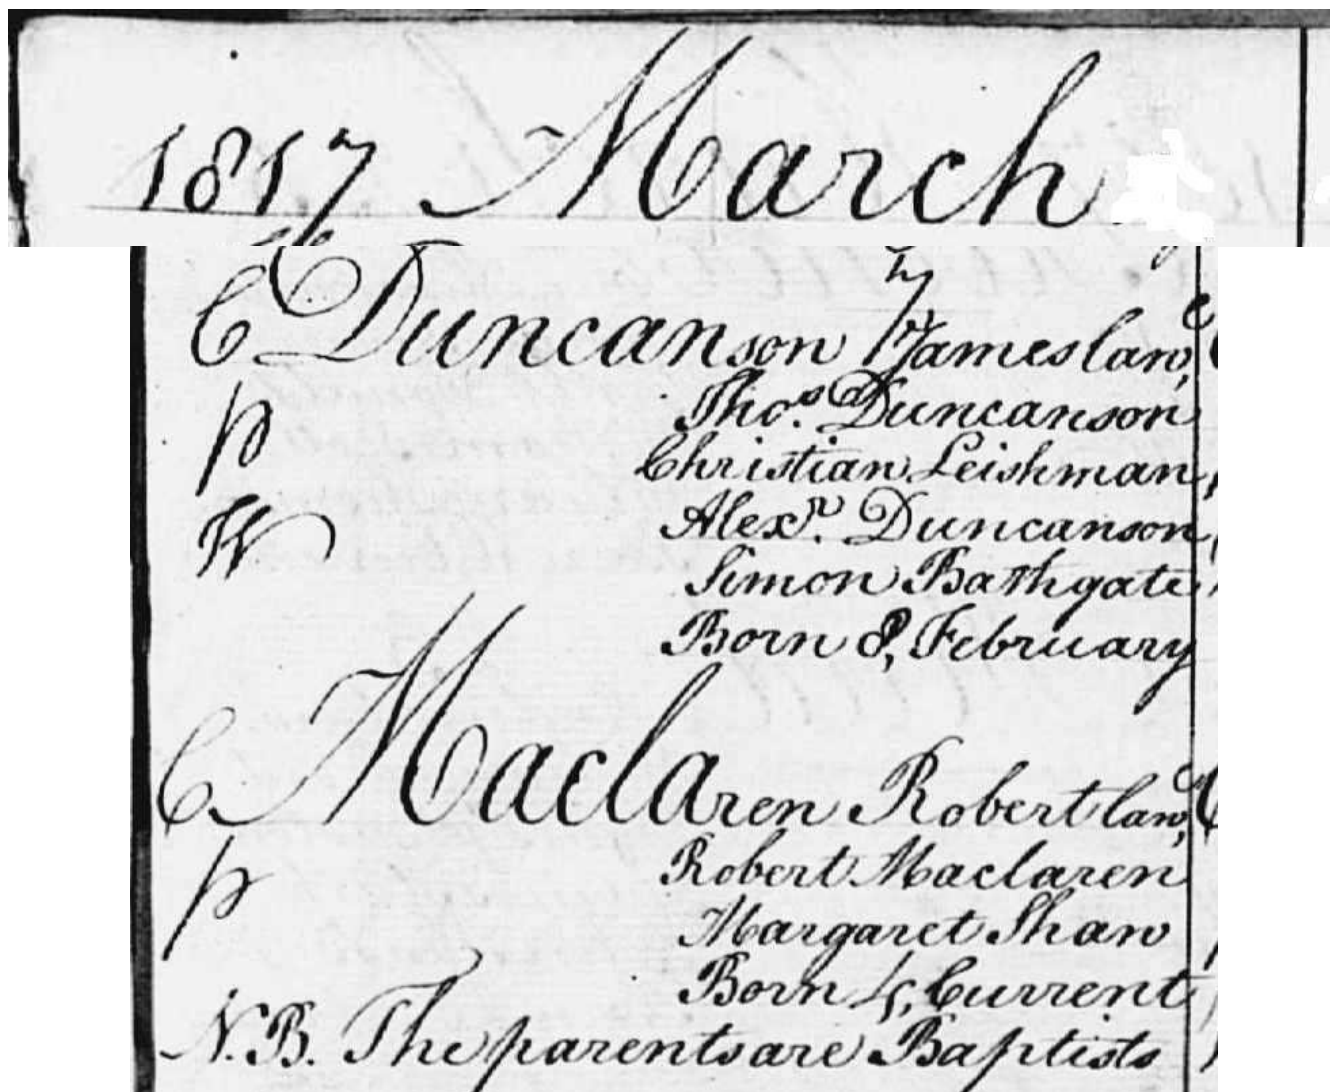 1817 March
C Duncanson James law,
p Tho.s Duncanson
Christian Leishman,
W Alex.r Duncanson,
Simon Bathgate
Born 8, February
C Maclaren Robert law,
p Robert Maclaren
Margaret Shaw
Born 4, Current
N.B. The parents are Baptists